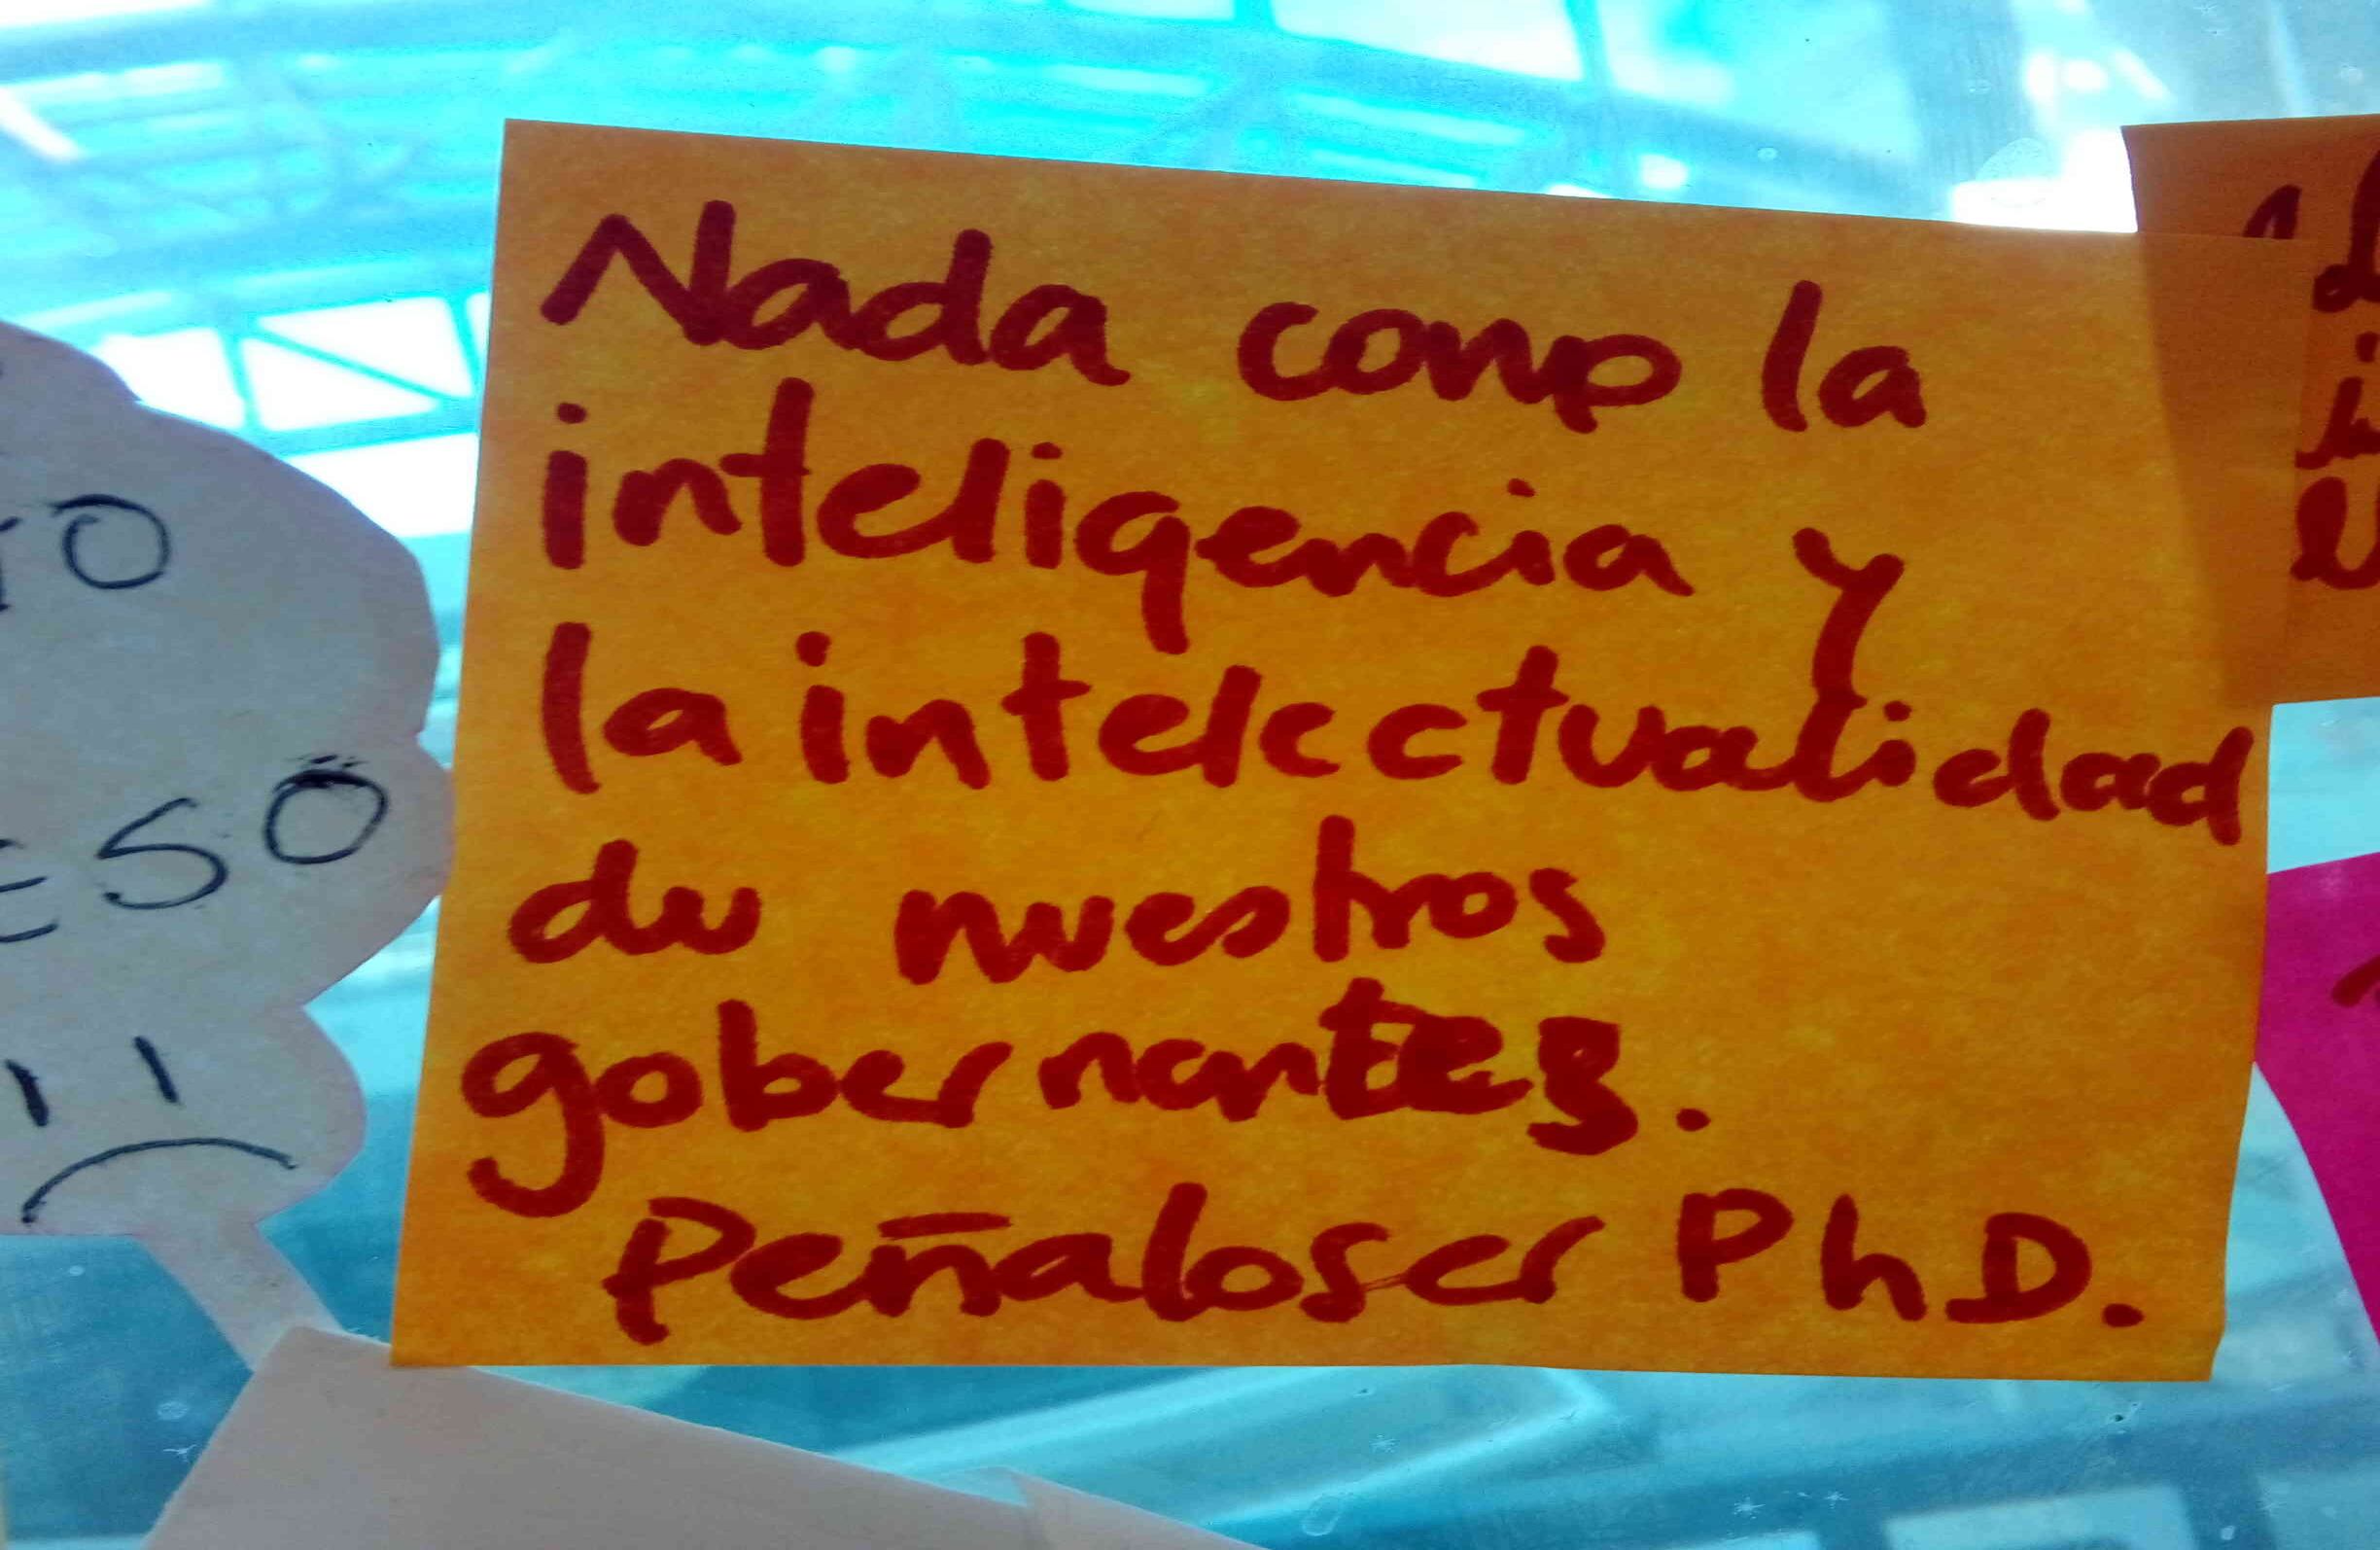 Nada como la
inteligencia y
la intelectualidad
de nuestros
gobernantes.
Peñaloser PhD.
TO
ESO